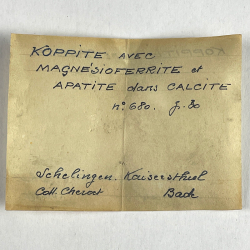 KÖPPITE AVEC
MAGNÉSIOFERRITE et
APATITE dans CALCITE
n° 680.
Schelingen. Kaisersthul
Coll. Chervet Bade